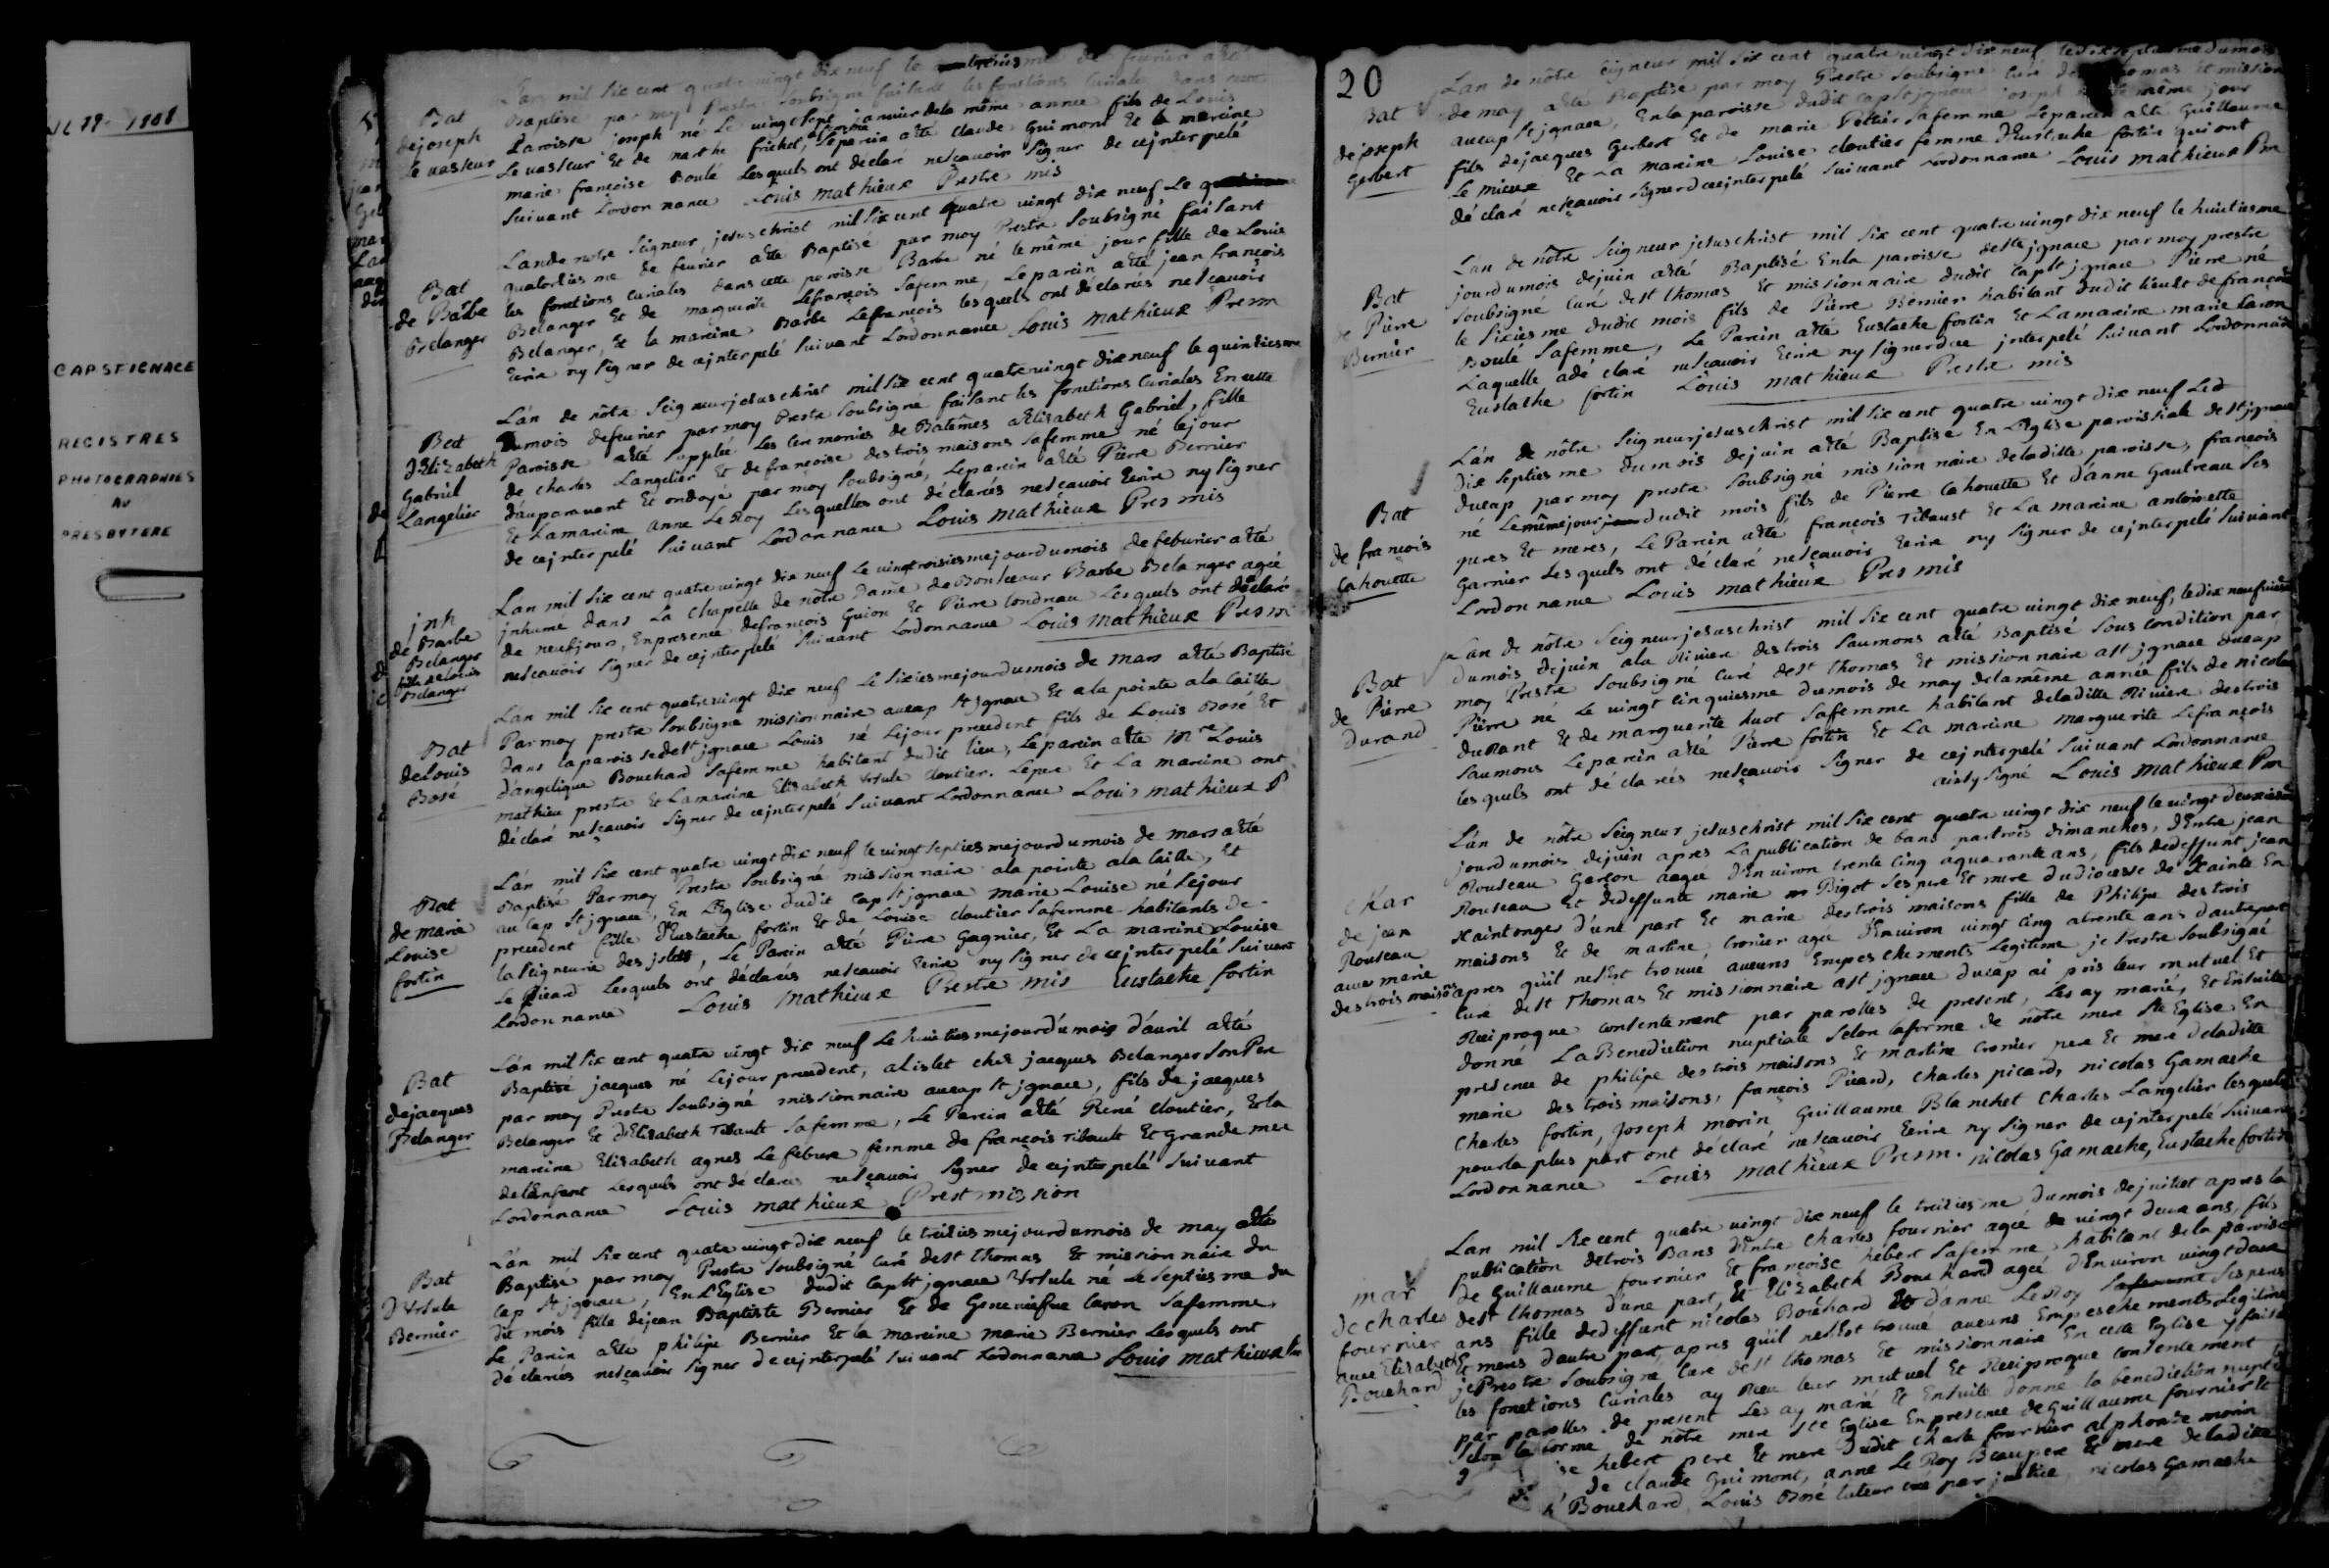 1679-1701
CAP ST IGNACE
REGISTRES
PHOTOGRAPHIES
AU
PRESBYTERE
Bat
de joseph
Le vasseur
L'an mil six cent quatre vingt dix neuf le de fevrier a été
Baptisé par moy Prestre soubsigné faisant les fonctions Curiales dans cette
Paroisse joseph né Le vingt sept janvier de la même année fils de Louis
Levasseur Et de marthe feminne Le parein a été claude Guimont Et la mareine
marie françoise Boulé Lesquels ont declaré ne sçavoir signer de ce jnterpelé
suivant Lordonnance Louis mathieux Prestre mis
Bat
de Barbe
Belanger
L'an de notre seigneur jesus christ mil six cent quatre vingt dix neuf Le
quatorsiesme de feurier a été Baptisé par moy Prestre soubsigné faisant
les fonctions curiales dans cette paroisse Barbe né le même jour fille de Louis
Belanger Et de marguerite Lefrançois safemme, Le parein a été jean françois
Belanger, Et la mareine Barbe Lefrançois lesquels ont déclarés ne sçavoir
Ecrire ny signer de ce jnterpelé suivant Lordonnance Louis mathieux Pr m
Bat
d'Elizabeth
Gabriel
Langelier
L'an de nôtre seigneur jesus christ mil six cent quatre vingt dix neuf le quinsiesme
du mois de feurier par moy Prestre soubsigné faisant les fonctions Curiales En cette
Paroisse a été supplée Les Ceremonies de Batêmes a Elisabeth Gabriel, fille
de charles Langelier Et de françoise destrois maisons safemme né le jour
d'auparavant Et ondoyé par moy soubsigné, Le parein a été Pierre Bernier
Et La mareine anne Le Roy Lesquelles ont déclarés ne sçavoir Ecrire ny signer
de ce jnterpelé suivant Lordonnance Louis mathieux Pres mis
jnh
de Barbe
Belanger
fille de Louis
Belanger
L'an mil six cent quatre vingt dix neuf Le vingt troisiesme jour du mois de feburier a été
jnhumé dans La chapelle de nôtre Dame de Bonsecour Barbe Belanger agée
de neuf jours, En presence de françois Guion Et Pierre Londreau Lesquels ont declaré
ne sçavoir signer de ce jnterpelé suivant Lordonnance Louis mathieux Pres m
Bat
de Louis
Bosé
L'an mil six cent quatre vingt dix neuf Le sixiesme jour du mois de mars a été Baptisé
Par moy prestre soubsigné missionnaire au cap st jgnace Et a la pointe a la Caille
Dans la paroisse de st jgnace Louis né Le jour precedent fils de Louis Bosé Et
d'angelique Bouchard safemme habitant dudit lieu, Le parein a été Mre Louis
mathieu prestre Et La mareine Elisabeth Ursule cloutier. Le pere Et La mareine ont
déclaré ne sçavoir signer de ce jnterpelé suivant Lordonnance Louis mathieux P
Bat
de marie
Louise
fortin
L'an mil six cent quatre vingt dix neuf le vingt septiesme jour du mois de mars a été
Baptisé Par moy Prestre soubsigné missionnaire a la pointe a la Caille, Et
au Cap st jgnace, En L'Eglise dudit Cap st jgnace marie Louise né Le jour
precedent fille d'Eustache fortin Et de Louise cloutier safemme habitants de
la seigneurie des jslets, Le Parein a été Pierre Gagnier, Et La mareine Louise
Le Picard Lesquels ont déclarés ne sçavoir Ecrire ny signer de ce jnterpelé suivant
Lordonnance Louis mathieux Prestre mis Eustache fortin
Bat
de jacques
Belanger
L'an mil six cent quatre vingt dix neuf Le huitiesme jour du mois d'auril a été
Baptisé jacques né Le jour precedent, a lislet chez jacques Belanger son Pere
par moy Prestre soubsigné missionnaire au cap st jgnace, fils de jacques
Belanger Et d'Elisabeth Tibault safemme, Le Parein a été René cloutier, Et la
mareine Elisabeth agnes Le febure femme de françois Tibault Et Grande mere
de l'Enfant Lesquels ont déclarés ne sçavoir signer de ce jnterpelé suivant
Lordonnance Louis mathieux Prest mission
Bat
d'Ursule
Bernier
L'an mil six cent quatre vingt dix neuf le treisiesme jour du mois de may a été
Baptisé par moy Prestre soubsigné Curé de st thomas Et missionnaire du
cap st jgnace, En L'Eglise dudit cap st jgnace Ursule né Le septiesme du
dit mois fille de jean Baptiste Bernier Et de Geneuiefue Caron safemme,
Le Parein a été philipe Bernier Et la mareine marie Bernier Lesquels ont
déclarés ne sçavoir signer de ce jnterpelé suivant Lordonnance Louis mathieux Pm
20
Bat
de joseph
Gerbert
L'an de nôtre seigneur mil six cent quatre vingt dix neuf le dix septiesme du mois
de may a été Baptisé par moy Prestre soubsigné Curé de thomas Et mission
au cap st jgnace, En la paroisse dudit cap st jgnace joseph né le même jour
fils de jacques Gerbert Et de marie Peltier safemme Le parein a été Guillaume
Le mieux Et La mareine Louise cloutier femme d'Eustache fortin qui ont
déclaré ne sçavoir signer de ce jnterpelé suivant Lordonnance Louis mathieux Pm
Bat
de Pierre
Bernier
L'an de nôtre seigneur jesus christ mil six cent quatre vingt dix neuf le huitiesme
jour du mois de juin a été Baptisé En la paroisse de st jgnace par moy prestre
soubsigné Curé de st thomas Et missionnaire dudit Cap st jgnace Pierre né
le sixiesme dudit mois fils de Pierre Bernier habitant dudit lieu Et de françoise
Boulé safemme, Le Parein a été Eustache fortin Et La mareine marie Caron
Laquelle a dé claré ne sçavoir Ecrire ny signer de ce jnterpelé suivant Lordonnance
Eustache fortin Louis mathieux Prestre mis
Bat
de françois
Cahouette
L'an de nôtre seigneur jesus christ mil six cent quatre vingt dix neuf Led
dix septiesme du mois de juin a été Baptisé En L'Eglise paroissiale de st jgnace
du cap par moy prestre soubsigné missionnaire de ladite paroisse, françois
né Le même jour dudit mois fils de Pierre Cahouette Et d'anne Gautreau ses
peres Et meres, Le Parein a été françois Tibaust Et La mareine antoinette
Garnier Lesquels ont déclaré ne sçavoir Ecrire ny signer de ce jnterpelé suivant
Lordonnance Louis mathieux Pres mis
Bat
de Pierre
Durand
L'an de nôtre seigneur jesus christ mil six cent quatre vingt dix neuf, le dix neufuiesme
du mois de juin a la Riviere des trois saumons a été Baptisé sous Condition par
moy Prestre soubsigné Curé de st thomas Et missionnaire a st jgnace du cap
Pierre né Le vingt cinquiesme du mois de may de la même année fils de nicolas
Durant Et de marguerite huot saffemme habitant de ladite Riviere des trois
saumons Le parein a été Pierre fortin Et La mareine marguerite Lefrançois
lesquels ont dé clarés ne sçavoir signer de ce jnterpelé suivant Lordonnance
ainsy signé Louis mathieux Pm
Mar
de jean
Rouseau
avec marie
destrois maisons
L'an de nôtre seigneur jesus christ mil six cent quatre vingt dix neuf le vingt deuxiesme
jour du mois de juin apres La publication de bans par trois dimanches, d'Entre jean
Rouseau Garçon aagée d'Enuiron trente cinq a quarante ans, fils de deffunt jean
Rouseau Et de deffunte marie Bigot ses pere Et mere du diocesse de Xainte En
Xaintonge, d'une part Et marie destrois maisons fille de Philipe destrois
maisons Et de martine Cronier agée d'Enuiron vingt cinq a trente ans d'autre part
apres qu'il ne s'Est trouué aucuns Empeschements Legitime je Prestre soubsigné
Curé de st Thomas Et missionnaire a st jgnace du cap ai pris leur mutuel Et
Reciproque consentement par parolles de present, Les ay marié, Et Ensuite
donné La Benediction nuptiale selon la forme de nôtre mere ste Eglise En
presence de philipe des trois maisons Et martine Cronier pere Et mere de ladite
marie des trois maisons, françois Picard, charles picard, nicolas Gamache
charles fortin, joseph morin Guillaume Blanchet charles Langelier lesquels
pour la plus part ont déclaré ne sçavoir Ecrire ny signer de ce jnterpelé suivant
Lordonnance Louis mathieux Pres m. nicolas Gamache, Eustache fortin
mar
de charles
fournier
avec Elisabeth
Bouchard
L'an mil six cent quatre vingt dix neuf le treisiesme du mois de juillet apres la
publication de trois Bans d'Entre charles fournier agée de vingt deux ans, fils
de Guillaume fournier Et françoise hébert safemme habitant de la paroisse
de st thomas d'une part, Et Elizabeth Bouchard agée d'Enuiron vingt deux
ans fille de deffunt nicolas Bouchard Et d'anne LeRoy ses peres
Et meres d'autre part, apres qu'il ne s'Est trouué aucuns Empeschements Legitime
je Prestre soubsigné Curé de st thomas Et missionnaire En cette Eglise y faisant
les fonctions Curiales ay Receu leur mutuel Et Reciproque consentement
par parolles de present Les ay marié Et Ensuite donné la benediction nuptiale
selon la forme de nôtre mere ste Eglise En presence de Guillaume fournier Et
hebert pere Et mere dudit charle fournier alphonse morin
de claude Guimont, anne LeRoy Beau pere Et mere de ladite
Bouchard, Louis Bosé tuteur créé par justice, nicolas Gamache